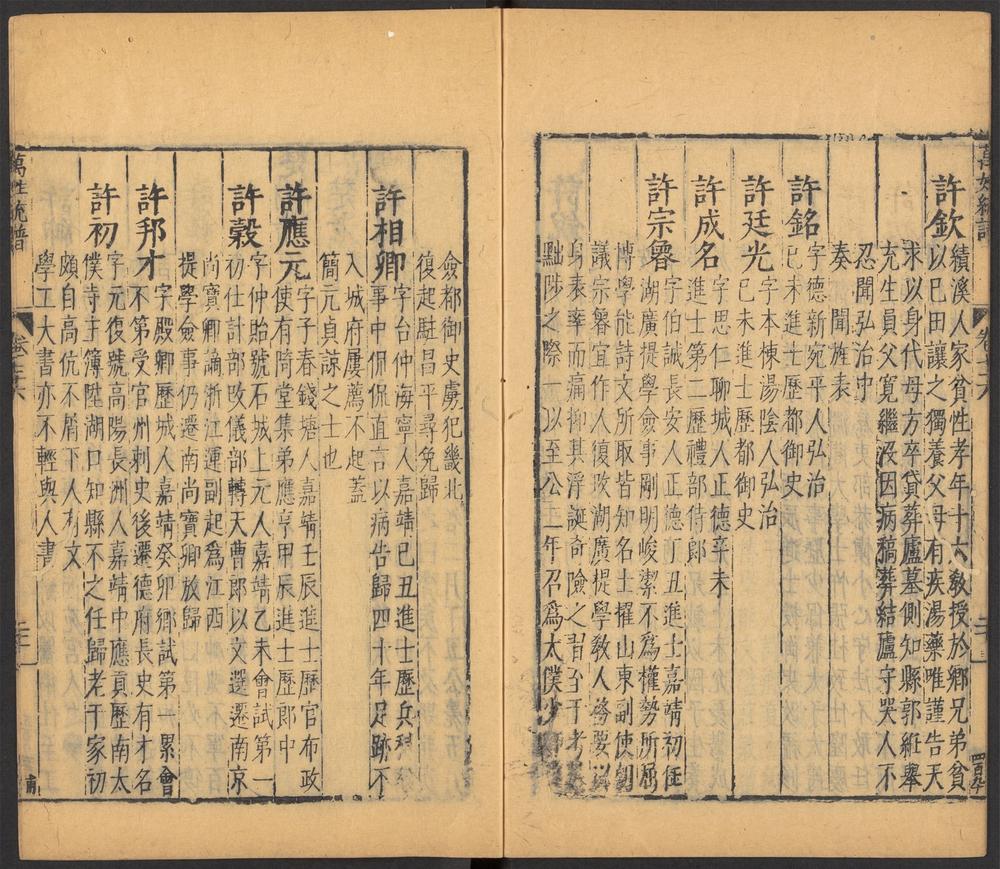 萬姓統譜
卷七十六
許欽
績溪人家貧性孝年十六教授於鄉兄弟貧
以己田讓之獨養父母有疾湯藥唯謹告天
求以身代母方卒貸葬廬墓側知縣郭紝舉
充生員父寬繼沒因病藁葬結廬守哭人不
忍聞弘治中
奏 聞旌表
許銘
字德新宛平人弘治
己未進士歷都御史
許廷光
字本棟湯陰人弘治
己未進士歷都御史
許成名
字思仁聊城人正德辛未
進士第二歷禮部侍郎
許宗魯
字伯誠長安人正德丁丑進士嘉靖初任
湖廣提學僉事剛明峻潔不為權勢所屈
博學能詩文所取皆知名士擢山東副使朝
議宗魯宜作人復改湖廣提學敎人務要以
身表率而痛抑其浮誕奇險之習至于考
黜陟之際一以至公二年召為太僕少
僉都御史虜犯畿北
復起駐昌平尋免歸
許相卿
字台仲海寧人嘉靖己丑進士歷兵科
事中侃侃直言以病告歸四十年足跡不
入城府屢薦不起蓋
簡亢貞諒之士也
許應元
字子春錢塘人嘉靖壬辰進士歷官布政
使有陭堂集弟應亨甲辰進士歷郎中
許榖
字仲貽號石城上元人嘉靖乙未會試第一
初仕計部改儀部轉天曹郎以文選遷南京
尚寶卿謫浙江運副起為江西
提學僉事仍遷南尚寶卿放歸
許邦才
字殿卿歷城人嘉靖癸卯鄉試第一累會
不第受官州刺史後遷德府長史有才名
許初
字元復號高陽長洲人嘉靖中應貢歷南太
僕寺主簿陞湖口知縣不之任歸老于家初
頗自高伉不屑下人有文
學工大書亦不輕與人書
萬姓統譜
卷七十六
二十